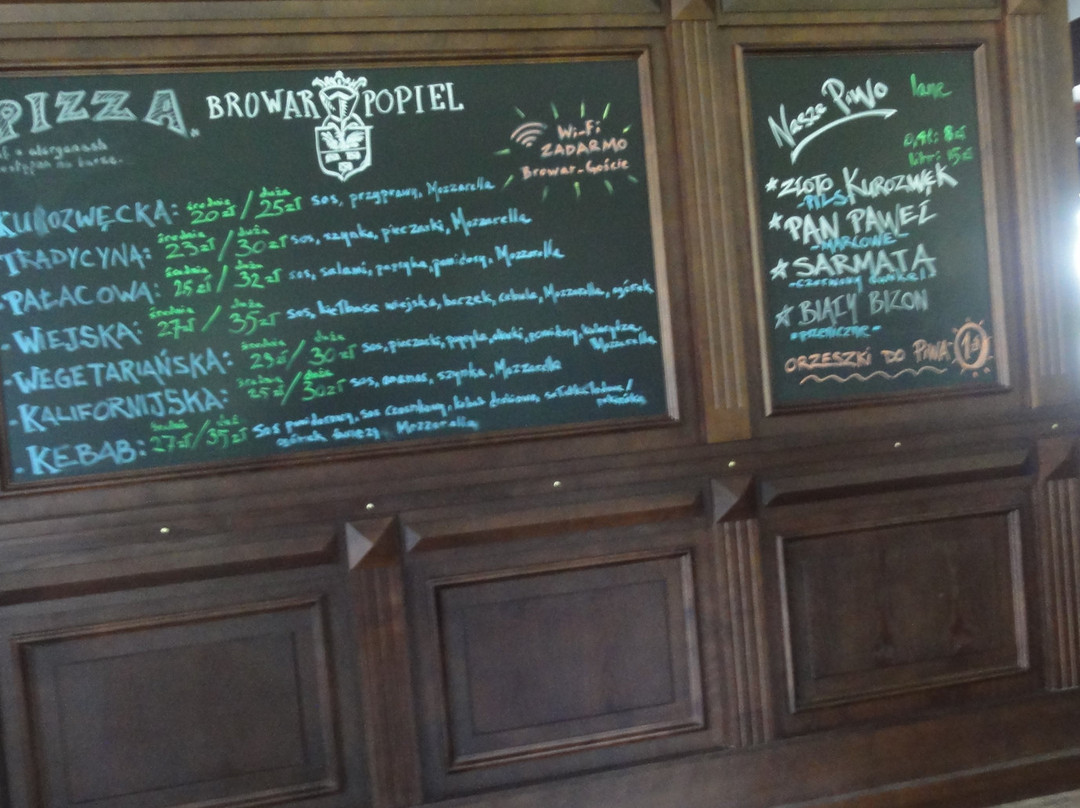 PIZZA
BROWAR POPIEL
Wi-Fi
ZADARMO
Browar-Goście
KUROZWĘCKA: średnia 20zł / duża 25zł sos, przyprawy, Mozzarella
TRADYCYNA: średnia 23zł / duża 30zł sos, szynka, pieczarki, Mozzarella
-PAŁACOWA: średnia 25zł / duża 32zł sos, salami, papryka, pomidory, Mozzarella
-WIEJSKA: średnia 27zł / duża 35zł sos, kiełbasa wiejska, boczek, cebula, Mozzarella, ogórek
-WEGETARIAŃSKA: średnia / duża 30zł sos, pieczarki, papryka, oliwki, pomidory, kukurydza, Mozzarella
-KALIFORNIJSKA: średnia 25zł / duża 30zł sos, ananas, szynka, Mozzarella
-KEBAB: średnia 27zł / duża 35zł Sos pomidorowy, sos czosnkowy, kebab drobiowy,
ogórek świeży, Mozzarella
Nasze Piwo lane
0,4l: 8zł
litr: 15zł
*ZŁOTO KUROZWĘK
-PILS-
*PAN PAWEŁ
-MARCOWE-
*SARMATA
-czerwony
*BIAŁY BIZON
-pszeniczne-
ORZESZKI DO PIWA: 1zł